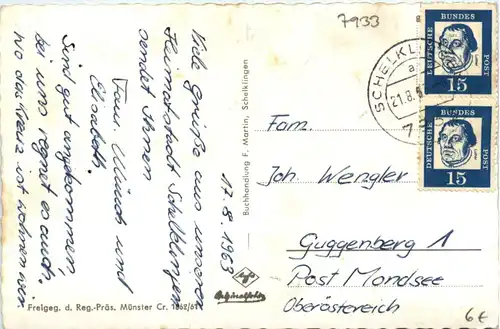 7933
17.8.1963
Viele Grüße aus unserer
Heimatstadt Schelklingen
sendet Ihnen
Frau Münch und
Elisabeth.
Sind gut angekommen,
bei uns regnet es auch.
wo das Kreuz ist wohnen wir.
Freigeg. d. Reg.-Präs. Münster Cr. 1862/61
Buchhandlung F. Martin, Schelklingen
Agfa
Originalfoto
SCHELKL
a
21.8.
7
DEUTSCHE BUNDES POST
15
DEUTSCHE BUNDES POST
15
Fam.
Joh. Wengler
Guggenberg 1
Post Mondsee
Oberösterreich
6€